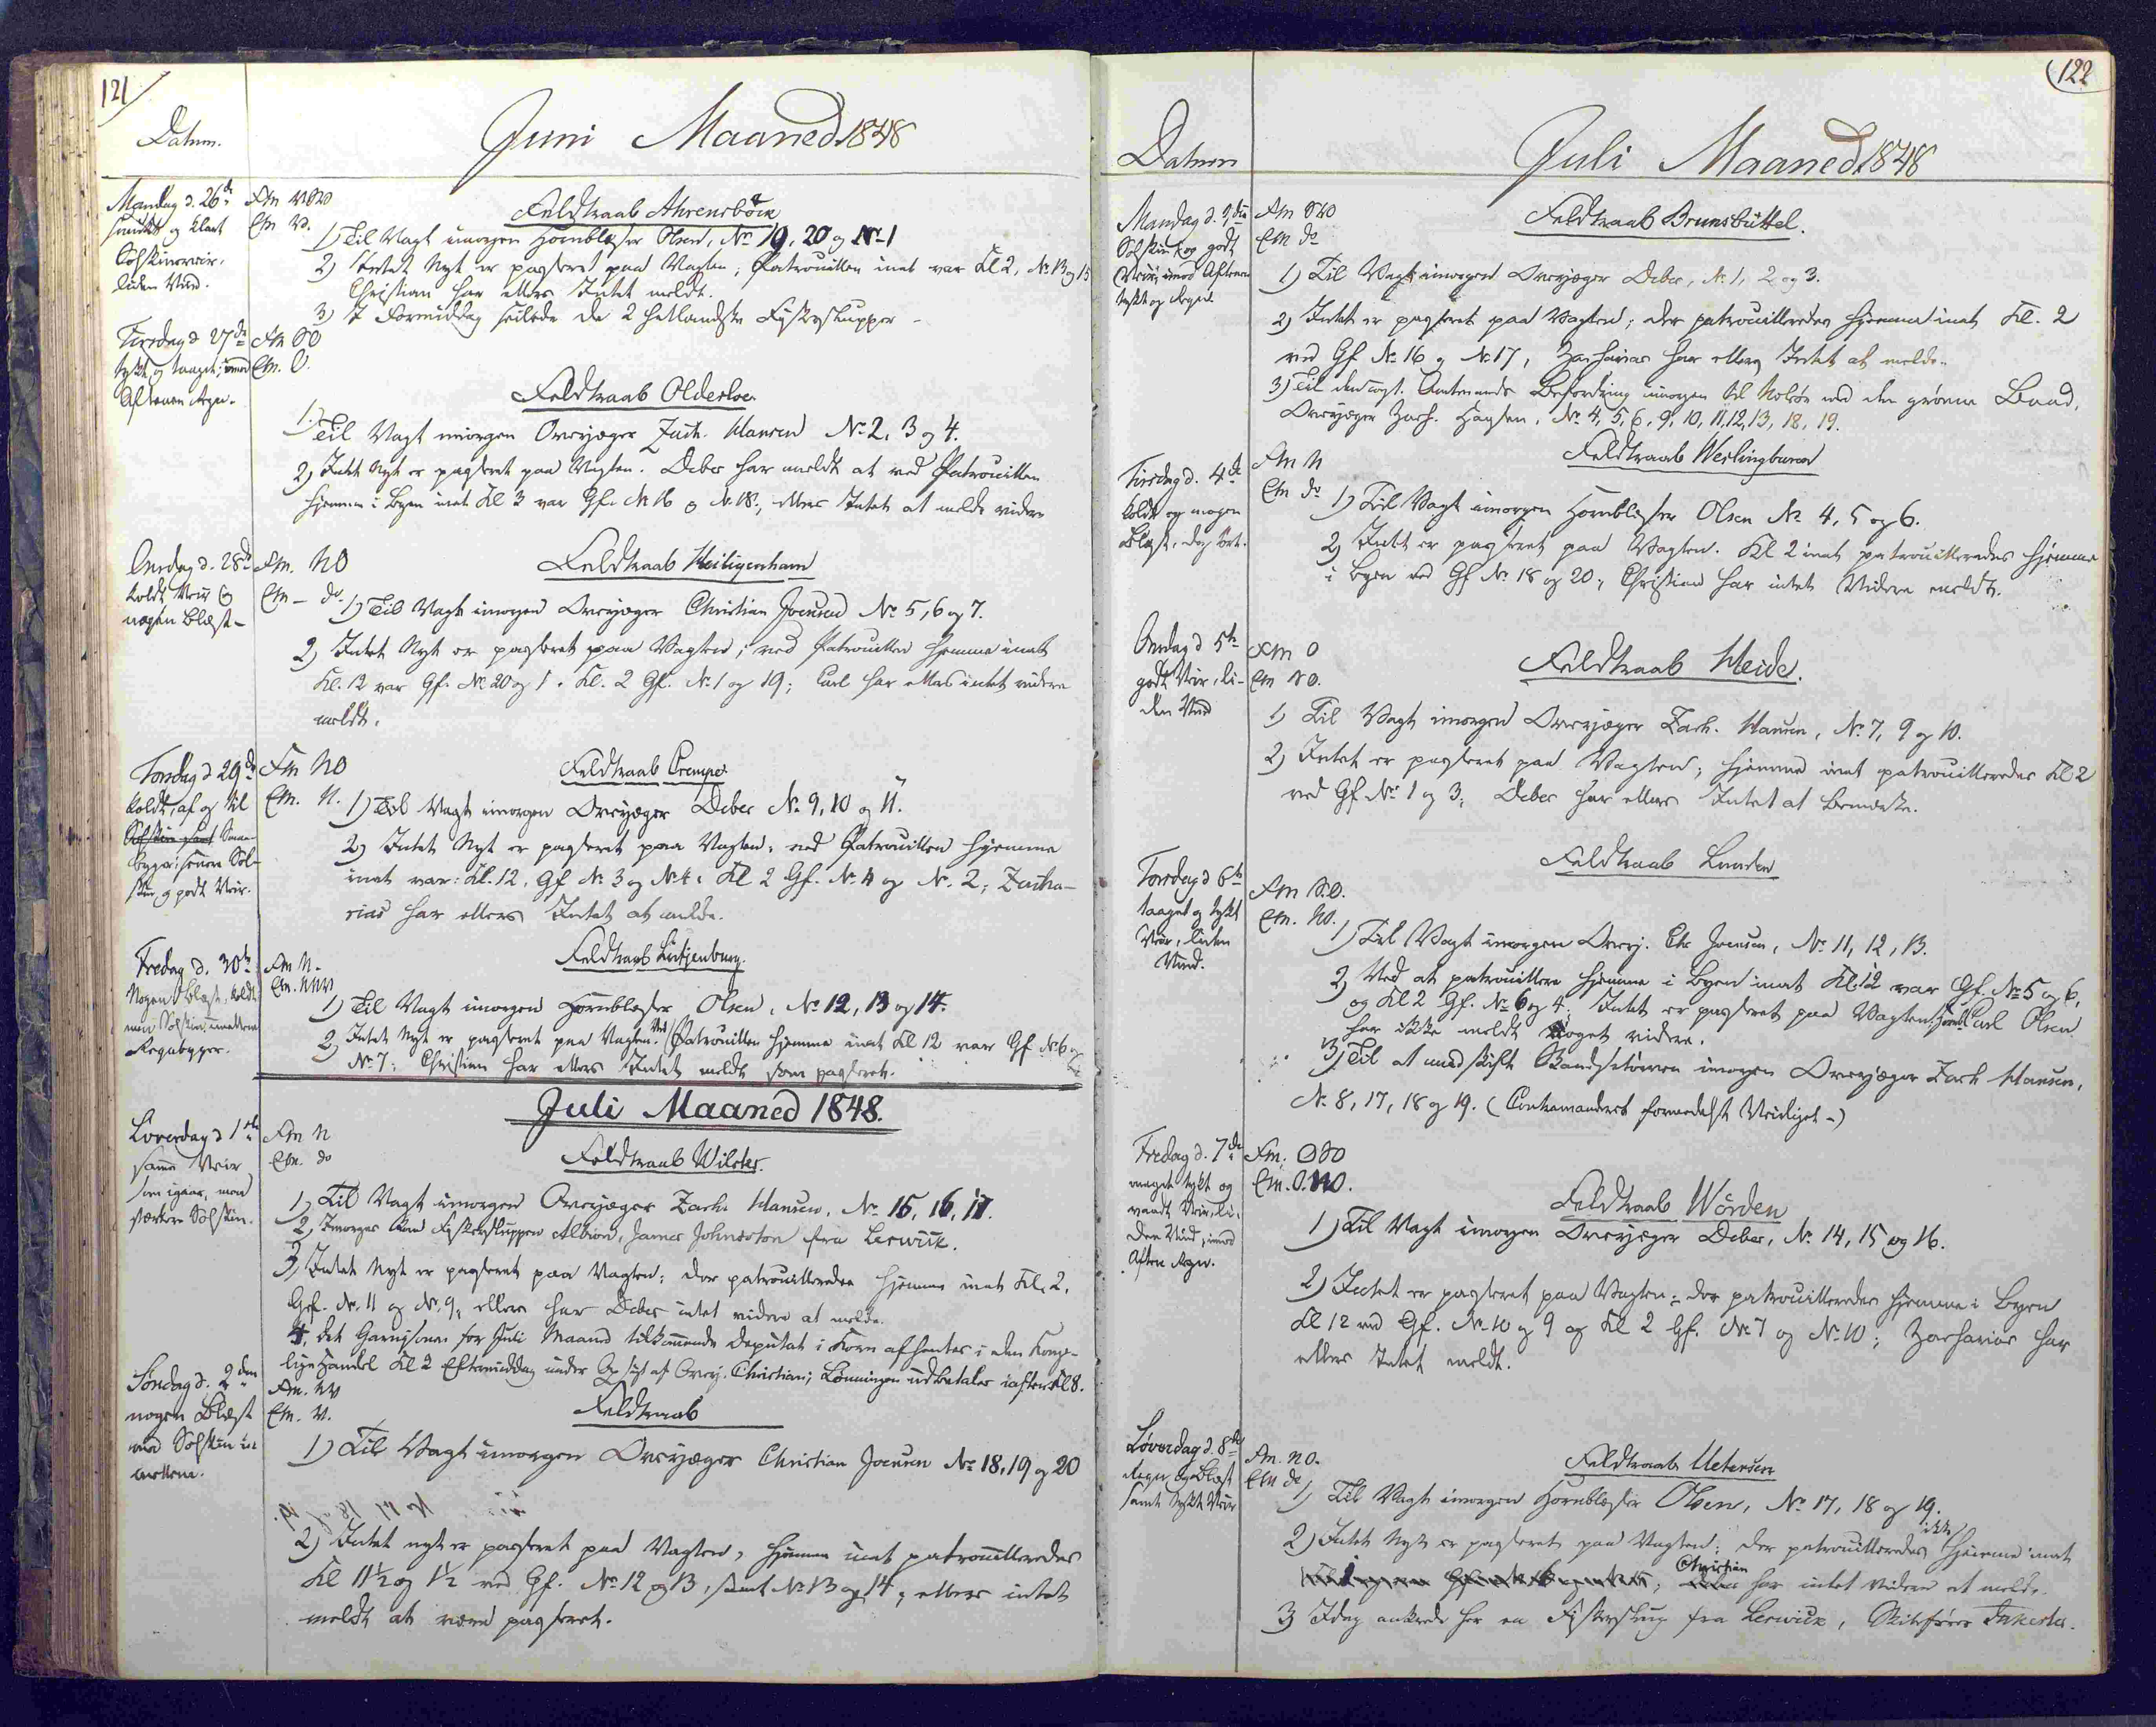 121
Datum.
Juni Maaned 1848
Mandag d. 26de
smukt og klart
Solskinsveir,
liden Vind.
Fm VSV
Em V.
Feldtraab Ahrensböck
1) Til Vagt imorgen Hornblæser Olsen, No 19, 20 og No 1
2) Intet Nyt er passeret paa Vagten; Patrouillen inat var Kl 2, No 13 og 15
Christian har ellers Intet meldt.
3) I Formiddag seilede de 2 hetlandske Fiskeslupper -
Tirsdag d 27de
tykt og taaget; imod
Aftenen Regn.
Fm SO
Em. O.
Feldtraab Oldesloe.
1.) Til Vagt imorgen Overjæger Zach. Hansen No 2, 3 og 4.
2) Intet Nyt er passeret paa Vagten. Debes har meldt at ved Patrouillen
hjemme i Byen inat Kl 3 var Gf. No 16 og No 18., ellers Intet at melde videre
Onsdag d. 28de
koldt Veir og
nogen Blæst -
Fm. NO
Em - do.
Feldtraab Heiligenham
1) Til Vagt imorgen Overjæger Christian Joensen No 5, 6 og 7.
2) Intet Nyt er passeret paa Vagten; ved Patrouillen hjemme inat
Kl. 12 var Gf. No 20 og 1. Kl. 2 Gf. No 1 og 19; Carl har ellers intet videre
meldt.
Torsdag d 29de
koldt, af og til
Solskin samt Smaa-
byger; senere Sol-
skin og godt Veir.
Fm NO
Em. N.
Feldtraab Crempe.
1) Til Vagt imorgen Overjæger Debes No 9, 10 og 11.
2) Intet Nyt er passeret paa Vagten; ved Patrouillen hjemme
inat var: Kl. 12, Gf No 3 og No 4. Kl 2 Gf. No 4 og No. 2; Zacha-
rias har ellers Intet at melde.
Fredag d. 30te
Nogen Blæst, koldt
med Solskin imellem
Regnbyger.
Fm N.
Em. NNV
Feldtraab Lütjenburg.
1) Til Vagt imorgen Hornblæser Olsen, No 12, 13 og 14.
2) Intet Nyt er passeret paa Vagten. Ved Patrouillen hjemme inat Kl 12 var Gf No 6 og
No 7; Christian har ellers Intet meldt som passeret.
Juli Maaned 1848.
Løverdag d 1ste
samme Veir
som igaar, med
stærkere Solskin.
Fm N
Em. do
Feldtraab Wilster.
1) Til Vagt imorgen Overjæger Zach. Hansen, No 15, 16, 17.
2) Imorges kom Fiskesluppen Albion, James Johnsston fra Lerwick.
3) Intet Nyt er passeret paa Vagten; der patrouilleredes hjemme inat Kl. 2,
Gf. No. 11 og No. 9; ellers har Debes intet videre at melde.
4, Det Garnisonen for Juli Maaned tilkommende Deputat i Korn afhentes i den Konge-
lige Handel Kl 2 Eftermiddag under Opsyn af Overj. Christian; Lønningen udbetales iaften Kl 8.
Søndag d. 2den
nogen Blæst
med Solskin im
ellem.
Fm. NV
Em. V.
Feldtraab
1) Til Vagt imorgen Overjæger Christian Joensen No 18, 19 og 20
2) Intet nyt er passeret paa Vagten, hjemme inat patrouilleredes
Kl 11½ og 1½ ved Gf. No 12 og 13, samt No 13 og 14; ellers intet
meldt at være passeret.
122
Datum
Juli Maaned 1848
Mandag d. 3die
Solskin og godt
Veir, imod Aftenen
tykt og Regn.
Fm SO
Em do
Feldtraab Brunsbüttel.
1) Til Vagt imorgen Overjæger Debes, No 1, 2 og 3.
2) Intet er passeret paa Vagten; der patrouilleredes hjemme inat Kl. 2
ved Gf No 16 og No 17, Zacharias har ellers Intet at melde.
3) Til den Befordring imorgen til Nolsöe med den grönne Baad,
Overjæger Zach. Hansen, No 4, 5, 6, 9, 10, 11, 12, 13, 18, 19.
Tirsdag d. 4de
koldt og megen
Blæst, dog tørt.
Fm N
Em do
Feldtraab Weslingburen
1) Til Vagt imorgen Hornblæser Olsen No 4, 5 og 6.
2) Intet er passeret paa Vagten. Kl 2 inat patrouilleredes hjemme
i Byen ved Gf No 18 og 20; Christian har intet Videre meldt.
Onsdag d 5te
godt Veir, li-
den Vind
Fm O
Em SO.
Feldtraab Heide.
1) Til Vagt imorgen Overjæger Zach. Hansen, No 7, 9 og 10.
2) Intet er passeret paa Vagten; hjemme inat patrouilleredes Kl 2
ved Gf No 1 og 3; Debes har ellers Intet at bemærke.
Torsdag d 6te
taaget og tykt
Veir, liden
Vind.
Fm SO.
Em. NO.
Feldtraab Lunden
1) Til Vagt imorgen Overj. Chr Joensen, No 11, 12, 13.
2) Ved at patrouillere hjemme i Byen inat Kl. 12 var Gf. No 5 og 6,
og Kl 2 Gf. No 6 og 4; Intet er passeret paa Vagten; Carl Olsen
har ikke meldt noget videre.
3) Til at imorgen Overjæger Zach Hansen,
No. 8, 17, 18 og 19. (Contramanderet formedelst Veirliget -)
Fredag d. 7de
meget tykt og
vaadt Veir, li-
den Vind, imod
Aften Regn.
Fm. OSO
Em. O.NO.
Feldtraab Wörden
1) Til Vagt imorgen Overjæger Debes, No 14, 15 og 16.
2) Intet er passeret paa Vagten; der patrouilleredes hjemme i Byen
Kl 12 ved Gf. No. 10 og 9 og Kl 2 Gf. No 7 og No 10; Zacharias har
ellers Intet meldt.
Løverdag d. 8de
Regn og Blæst
samt tykt Veir
Fm. NO.
Em do
Feldtraab Uetersen
1) Til Vagt imorgen Hornblæser Olsen, No 17, 18 og 19.
2) Intet Nyt er passeret paa Vagten; der patrouilleredes ikke hjemme inat
Christian har intet videre at melde.
3) Idag ankrede her en Fiskeslup fra Lerwick, Skibsfører Inkester.